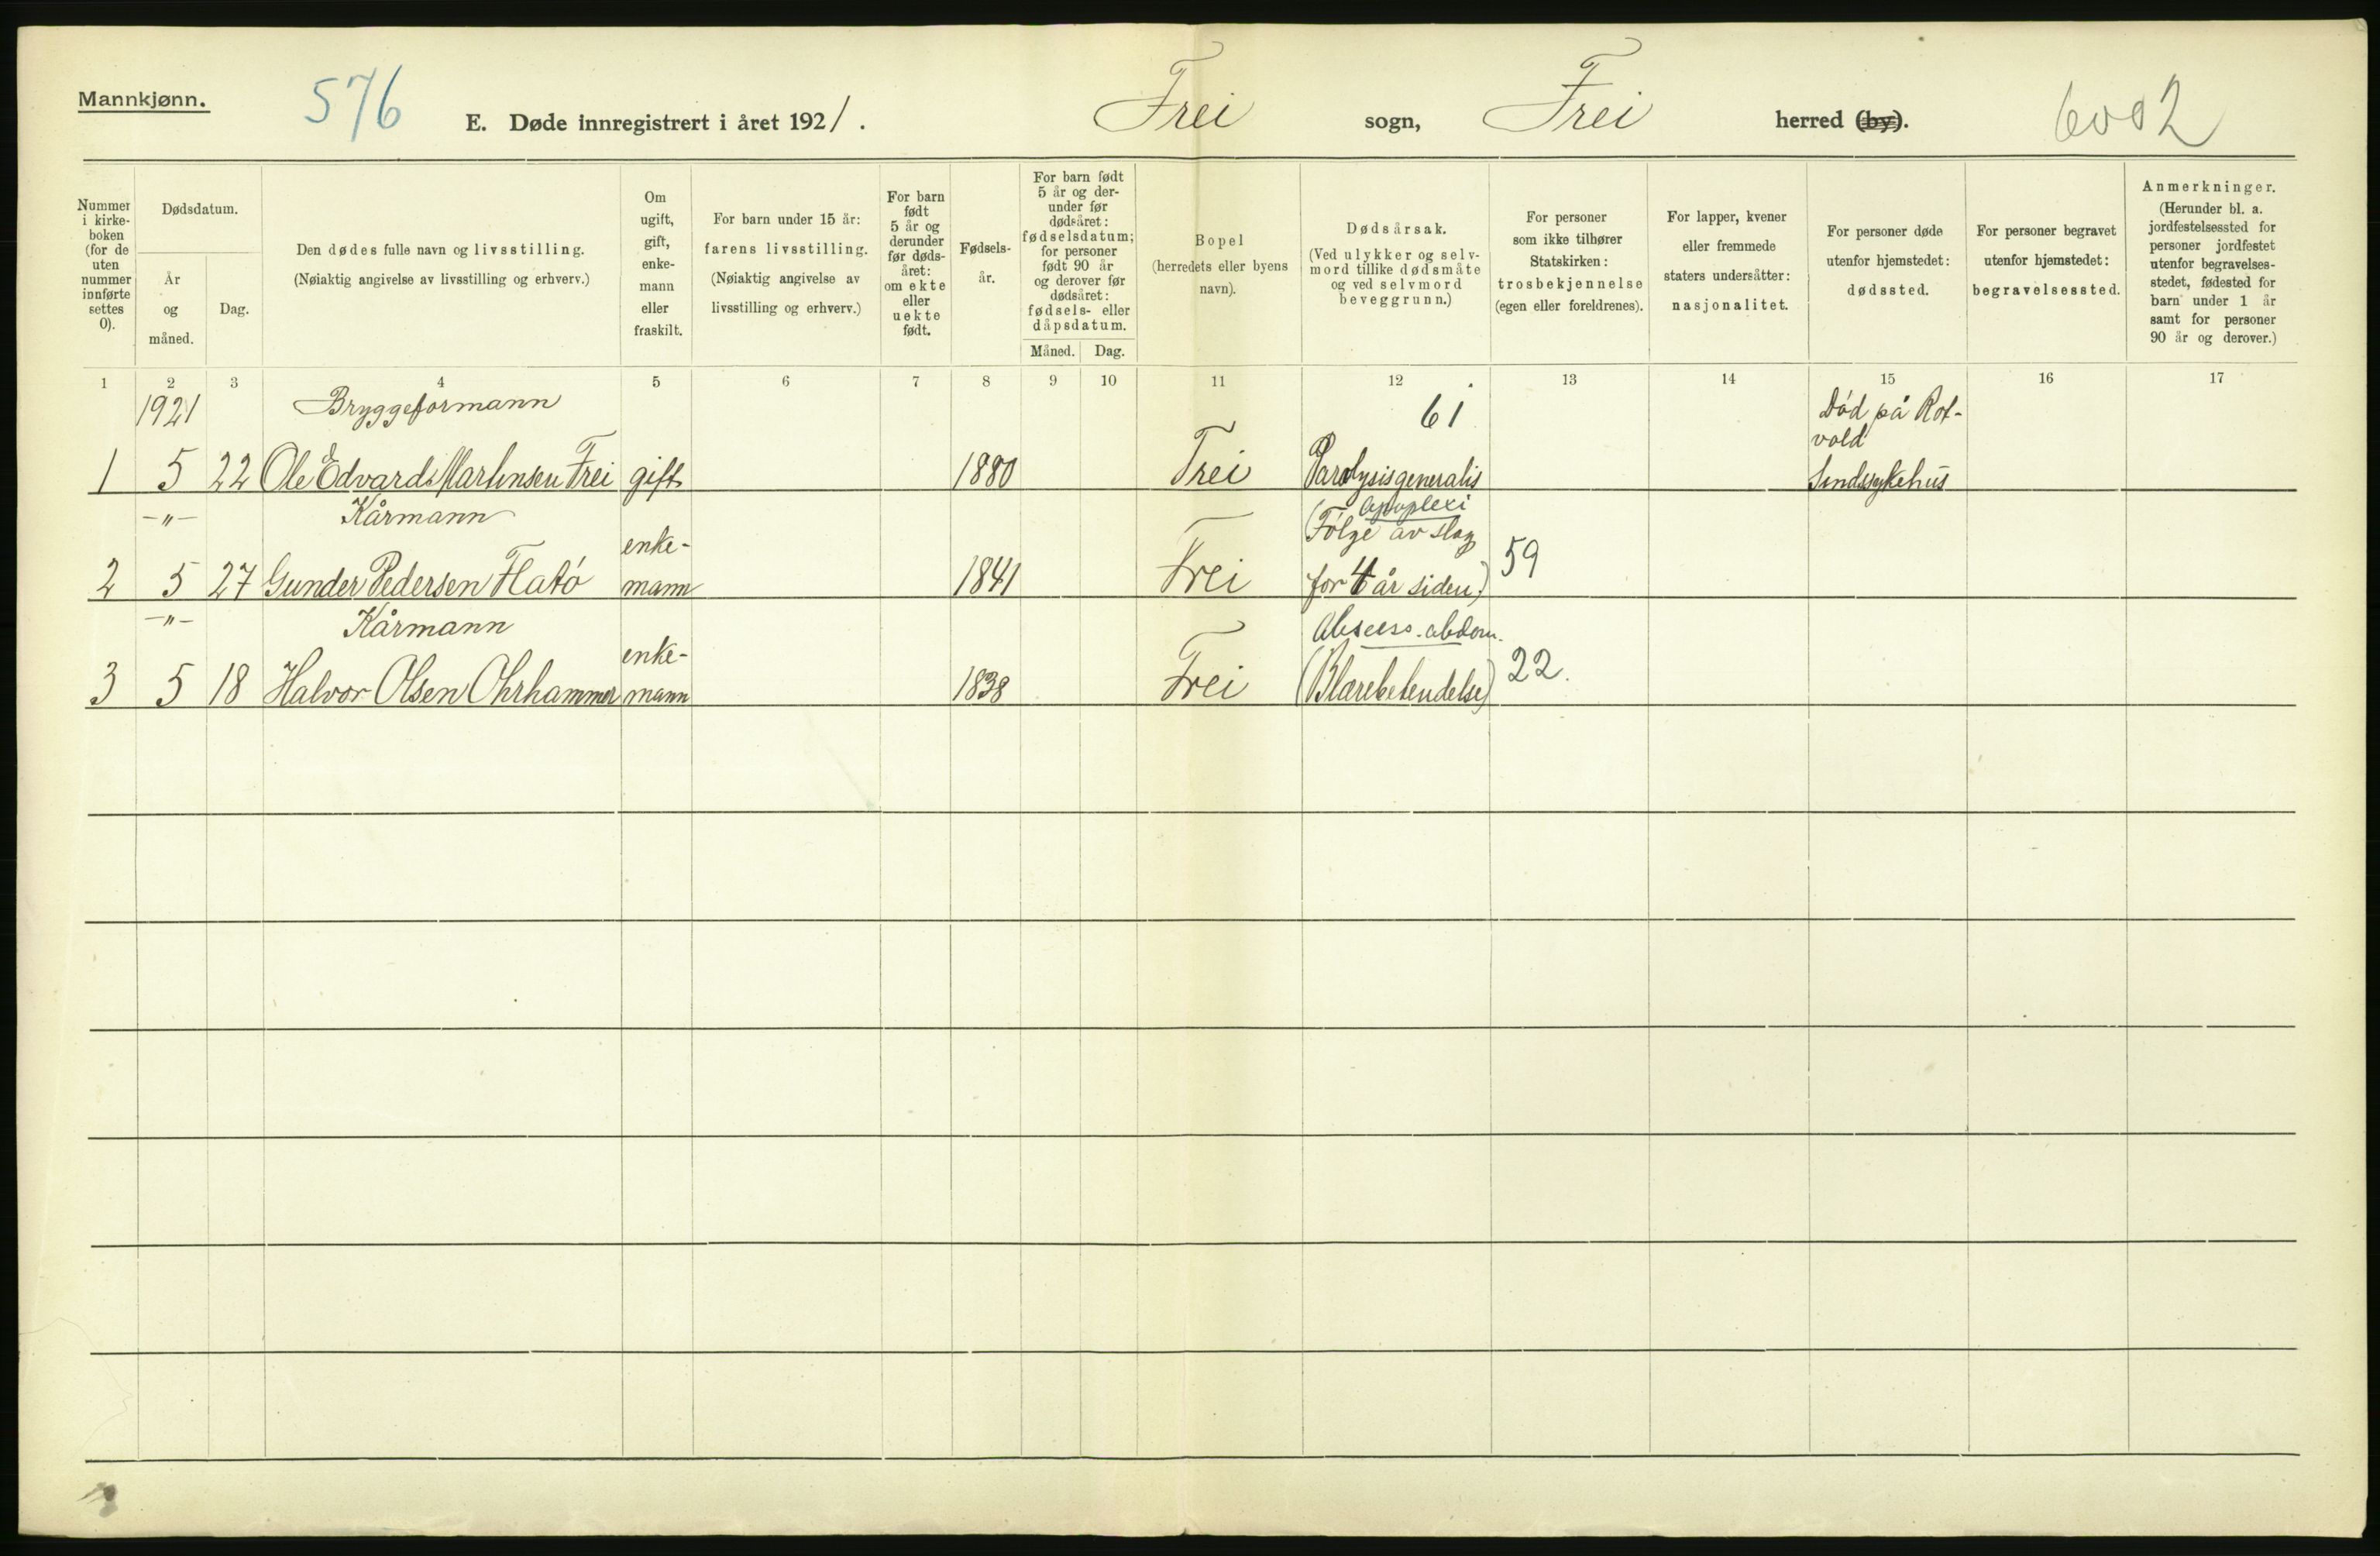 Mannkjønn.
576
E. Døde innregistrert i året 1921.
Frei sogn, Frei herred (by).
6002
Nummer
i kirke-
boken
(for de
uten
nummer
innførte
settes
0).
Dødsdatum.
År
og
måned.
Dag.
Den dødes fulle navn og livsstilling.
(Nøiaktig angivelse av livsstilling og erhverv.)
Om
ugift,
gift,
enke-
mann
eller
fraskilt.
For barn under 15 år:
farens livsstilling.
(Nøiaktig angivelse av
livsstilling og erhverv.)
For barn
født
5 år og
derunder
før døds-
året:
om ekte
eller
uekte
født.
Fødsels-
år.
For barn født
5 år og der-
under før
dødsåret:
fødselsdatum;
for personer
født 90 år
og derover før
dødsåret:
fødsels- eller
dåpsdatum.
Måned. Dag.
Bopel
(herredets eller byens
navn).
Dødsårsak.
(Ved ulykker og selv-
mord tillike dødsmåte
og ved selvmord
beveggrunn.)
For personer
som ikke tilhører
Statskirken:
trosbekjennelse
(egen eller foreldrenes).
For lapper, kvener
eller fremmede
staters undersåtter:
nasjonalitet.
For personer døde
utenfor hjemstedet:
dødssted.
For personer begravet
utenfor hjemstedet:
begravelsessted.
Anmerkninger.
(Herunder bl. a.
jordfestelsessted for
personer jordfestet
utenfor begravelses-
stedet, fødested for
barn under 1 år
samt for personer
90 år og derover.)
1 2 3 4 5 6 7 8 9 10 11 12 13 14 15 16 17
1921 Bryggeformann 61 Død på Rot-
vold
1 5 22 Ole Edvard Martinsen Frei gift 1880 Frei Paralysis generalis Sindssykehus
-"- Kårmann Apoplexi
enke- (Følge av slag
2 5 27 Gunder Pedersen Flatø mann 1841 Frei for 4 år siden) 59
-"- Kårmann Abscess. abdom.
enke-
3 5 18 Halvor Olsen Ohrhammer mann 1838 Frei (Blærebetendelse) 22.